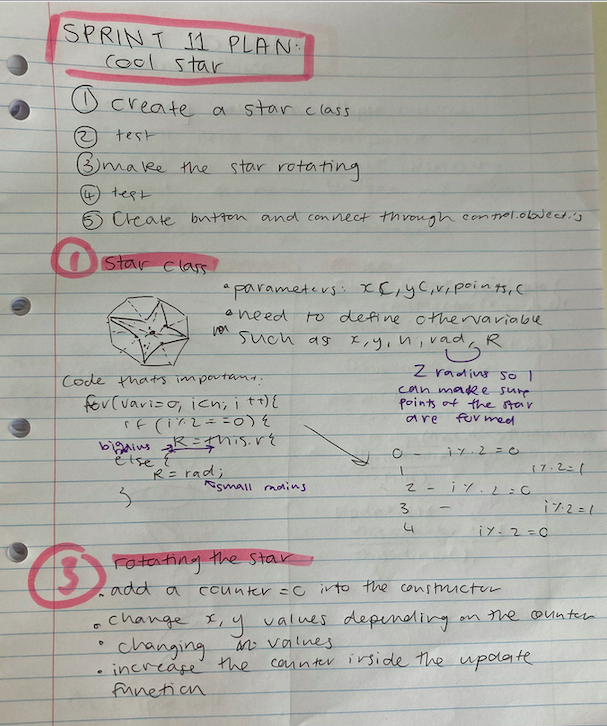 SPRINT 11 PLAN:
cool star
① create a star class
② test
③ make the star rotating
④ test
⑤ Create button and connect through control.object.js
① star class
• parameters: xC, yC, r, points, c
• need to define othervariable
such as x, y, n, rad, R
2 radius so I
can make sure
points of the star
are formed
Code thats important:
for(var i=0; i<n; i++){
if (i%2==0) {
R = this.r{
else {
R = rad;
small radius
}
0 - i%2=0
1 i%2=1
2 - i%2=0
3 - i%2=1
4 i%2=0
③ rotating the star
• add a counter=c into the constructor
• change x, y values depending on the counter
• changing values
• increase the counter inside the update
function